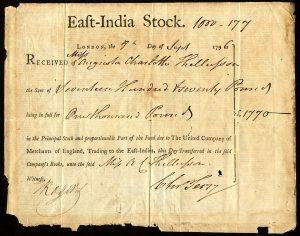 East-India Stock. 1000-177
LONDON, the 9th Day of Sept 1796
RECEIVED of Miss Augusta Charlotte Thellusson
the Sum of Seventeen Hundred & seventy Pounds
being in full for One thousand Pounds £1770
in the Principal Stock and proportionable Part of the Fund due to The United Company of
Merchants of England, Trading to the East-Indies, this Day Transferred in the said
Company's Books, unto the said Miss A C Thellusson
Witness,
Chrs Terry